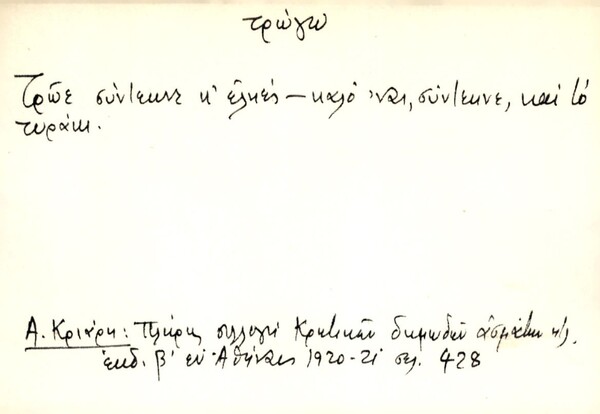 τρώγω
Τρῶε σύντεκνε κ' ἐλιές – καλό 'ναι, σύντεκνε, καὶ τό
τυράκι.
Α. Κριάρη: Πλήρης συλλογή Κρητικῶν δημωδῶν ἀσμάτων κ'λ.
ἐκδ. β' ἐν Ἀθήναις 1920-21 σελ. 428